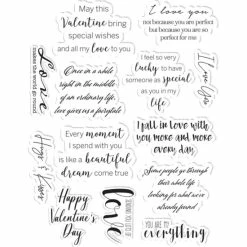 May this
Valentine bring
special wishes
and all my love to you
I love you
not because you are perfect
but because you are so
perfect for me
Love
makes the world go round
Once in a while
right in the middle
of an ordinary life
love gives us a fairytale
I feel so very
lucky to have
someone as special
as you in
my life.
I Love You
Every moment
I spend with you
is like a beautiful
dream come true
I fall in love with
you more and more
every day
Hugs & Kisses
Some people go through
their whole life
looking for what we've
already found
Happy
Valentine's
Day
love
YOU ARE MY
everything